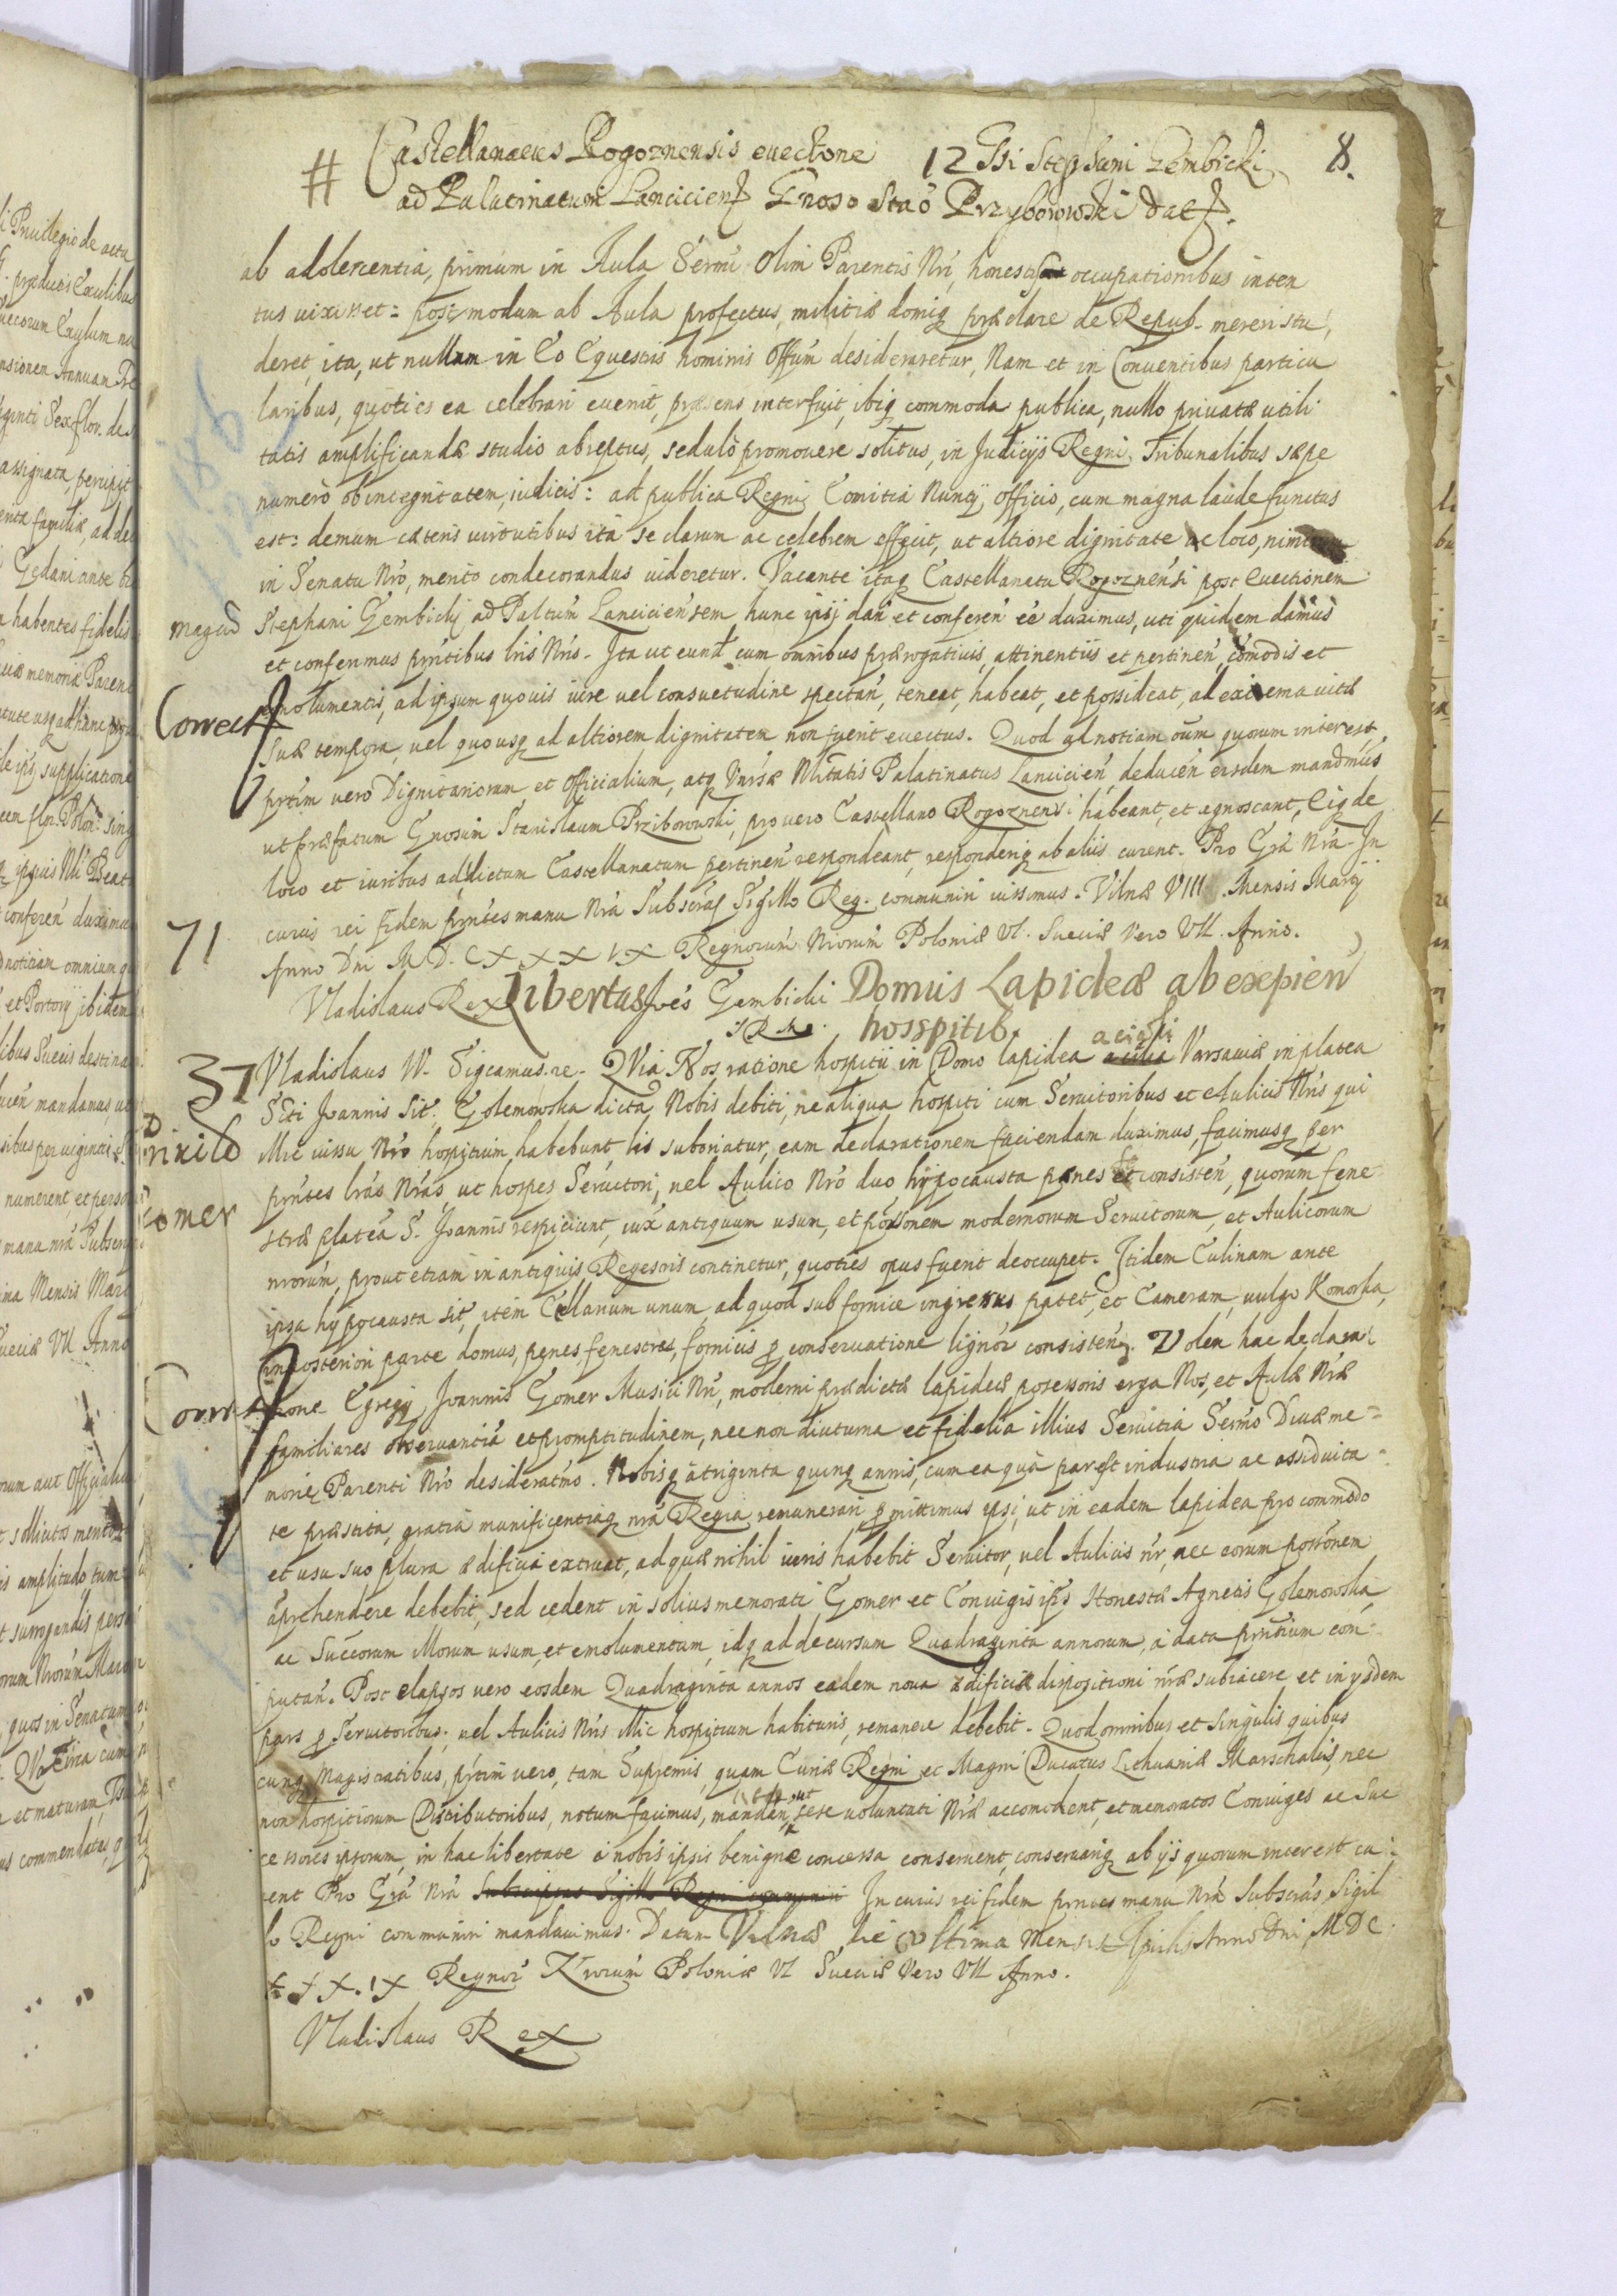 # Castellanaeus Rogoznensis euectone 12 Gsi Stephani Gembicki 8.
ad Palatinatum Lanciciens Gnoso Stao Przyborowski datf.
ab adolescentia, primum in Aula Sermi Olim Parentis Nri, honestis occupationibus inten
tus uixisset: post modum ab Aula profectus, militiæ domiq præclare de Repub. mereri stu,
deret, ita, ut nullum in Eo Equestris hominis Offum desideraretur, Nam et in Conuentibus particu
laribus, quoties ea celebrari euenit, præsens interfuit, ibiq commoda publica, nullo priuatæ utili
tatis amplificandæ studio abreptus, sedulò promouere solitus, in Judicijs Regni Tribunalibus sæpe
numerò ob integritatem, iudicis: ad publica Regni Comitia Nuncij officio, cum magna laude functus
est: demum cæteris uirtutibus ita se clarum ac celebrem effecit, ut altiore dignitate ac loco,
in Senatu Nro, merito condecorandus uideretur. Vacante itaq Castellanatu Rogoznensi post Euectionem
magnd Stephani Gembickj ad Paltum Lanciciensem hunc ipsj dan et conferen ee duximus, uti quidem damus
et conferimus pntibus lris Nris. Ita ut eund cum omnibus prærogatiuis, attinentijs et pertinen, comodis et
Correct emolumentis, ad ipsum quouis iure uel consuetudine spectan, teneat, habeat, et possideat, ad extrema uitæ
suæ tempora, uel quousq ad altiorem dignitatem non fuerit euectus. Quod ad notiam oium quorum interest,
prtim uero Dignitariorum et Officialium, atq Vnirsæ Nlitatis Palatinatus Lancicien deducen eisdem mandmus
ut præfatum Gnosum Stanislaum Prziborowski, pro uero Castellano Rogoznensi habeant, et agnoscant, Eiq de
loco et iuribus ad dictum Castellanatum pertinen respondeant, responderiq ab aliis curent. Pro Gra Nra. In
71 cuius rei fidem pntes manu Nra Subscras Sigillo Reg. communiri iussimus. Vilnæ VIII Mensis Martij
Anno Dni M.D.C.X X X I X Regnorum Nrorum Poloniæ VI. Sueciæ Vero VII. Anno.
Vladislaus Rex Libertas Joes Gembicki Domus Lapideæ ab excipien
SRM. hosspitib.
37 Vladislaus IV. Sigeamus. re. QVia Nos ratione hospitii in Domo lapidea Varsauiæ in platea
Scti Joannis sit. Golemowska dicta, Nobis debiti, ne aliqua hospiti cum Seruitoribus et Aulicis Nris qui
illic iussu Nro hospitium habebunt lis suboriatur, eam declarationem faciendam duximus, facimusq per
pntes lras Nras ut hospes Seruitori, uel Aulico Nro duo hypocausta penes consisten, quorum fene
omer stræ platea S. Joannis respiciunt, iux antiquum usum, et possonem modernorum Seruitorum, et Aulicorum
nrorum, prout etiam in antiquis Regestris continetur, quoties opus fuerit deoccupet. Itidem Culinam ante
ipsa hypocausta sit, item Cellarium unum, ad quod sub fornice ingressus patet, et Cameram, uulgo Komorka,
in posteriori parte domus, penes fenestras, fornicis p conseruatione lignor consisten. Volen hac declara
Correct tione Egregij Joannis Gomer Musici Nri, moderni prædictæ lapideæ posessoris erga Nos, et Aulæ Nræ
familiares obseruantiâ et promptitudinem, nec non diuturna et fidelia illius Seruitia Sermo Diuæ me=
moriæ Parenti Nro desideratmo. Nobisq à triginta quinq annis, cum ea quâ par est industria ac assiduita=
te præstita, gratiâ munificentiaq nrâ Regia remunerari, pmittimus ipsi, ut in eadem lapidea pro commodo
et usu suo plura ædificia extruat, ad quæ nihil iuris habebit Seruitor, uel Aulicus nr, nec eorum possonem
aprehendere debebit, sed cedent in solius memorati Gomer et Coniugis ipsis Honestæ Agnetis Golemowska,
ac Successorum illorum usum, et emolumentum, idq ad decursum Quadraginta annorum, à data pntium com=
putan. Post elapsos uero eosdem Quadraginta annos eadem noua ædificia dispositioni nræ subiacere, et in ijsdem
pars p Seruitoribus, uel Aulicis Nris illic hospitium habituris, remanere debebit. Quod omnibus et Singulis quibus
cunq Magistratibus, prtim uero, tam Supremis, quam Curiæ Regni et Magni Ducatus Lithuaniæ Marschalis, nec
non hospitiorum Distributoribus, notum facimus, manden, ut sese uoluntati Nræ accomodent, et memoratos Coniuges ac Suc
cessores ipsorum, in hac libertate à nobis ipsis benignè concessa conseruent, conseruariq ab ijs quorum interest cu:
rent Pro Gra Nra Subscriptas Sigillo Regni communiri In cuius rei fidem pntes manu Nra Subscras, Sigil
lo Regni communiri mandauimus. Datum Vilnæ die Vltima Mensis Aprilis Anno Dni, MDC.
X X X. I X Regnor Nrorum Poloniæ VI Sueciæ Vero VII Anno.
Vladislaus Rex